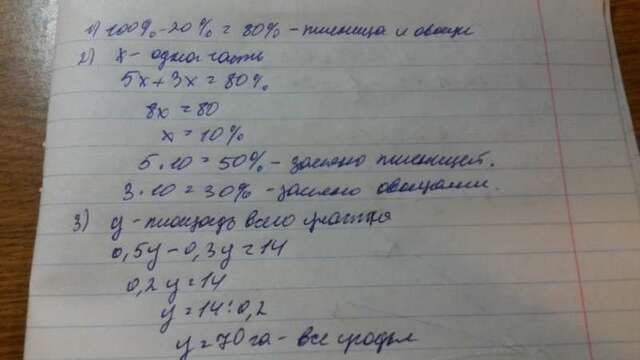 1) 100% - 20% = 80% - пшеница и овощи
2) x - одна часть
5x + 3x = 80%
8x = 80
x = 10%
5 · 10 = 50% - засеяно пшеницей.
3 · 10 = 30% - засеяно овощами.
3) y - площадь всего участка
0,5y - 0,3y = 14
0,2y = 14
y = 14 : 0,2
y = 70 га - все